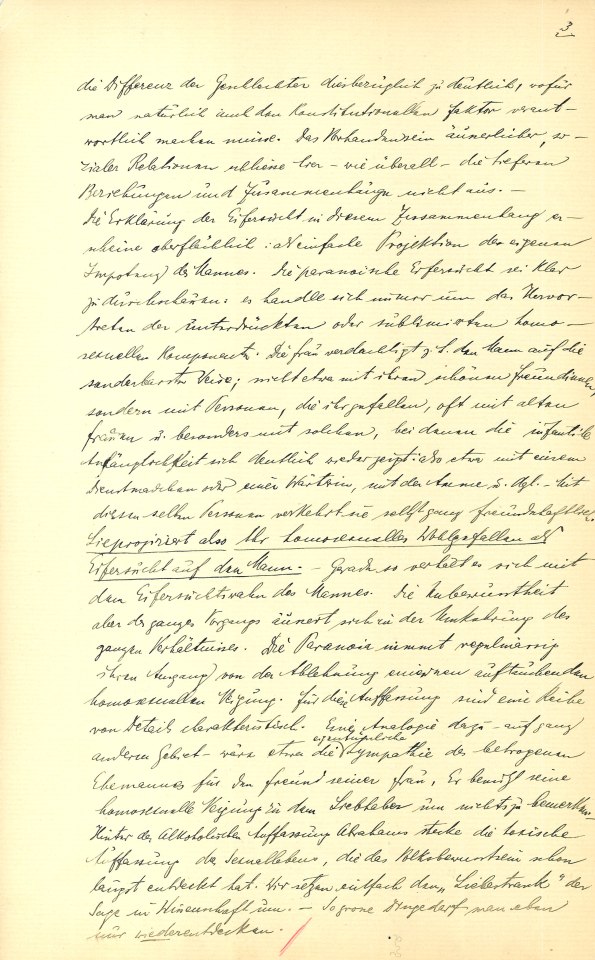 3
die Differenz der Geschlechter diesbezüglich zu deutlich, wofür
man natürlich auch den Konstitutionellen Faktor verant-
wortlich machen müsse. Das Vorhandensein äusserlicher, so-
zialer Relationen schliesse hier - wie überall - die tieferen
Beziehungen und Zusammenhänge nicht aus. -
Die Erklärung der Eifersucht in diesem Zusammenhang er-
scheine oberflächlich: als einfache Projektion der eigenen
Impotenz des Mannes. Die paranoische Eifersucht sei klar
zu durchschauen: es handle sich immer um das Hervor-
treten der unterdrückten oder sublimirten homo-
sexuellen Komponente. Die Frau verdächtigt z. B. den Mann auf die
sonderbarste Weise; nicht etwa mit ihren schönen Freundinnen,
sondern mit Personen, die ihr gefallen, oft mit alten
Frauen u. besonders mit solchen, bei denen die infantile
Anhänglichkeit sich deutlich wieder zeigt: also etwa mit einem
Dienstmädchen oder einer Wärterin, mit der Amme u. dgl. - Mit
diesen selben Personen verkehrt sie selbst ganz freundschaftlich.
Sie projiziert also Ihr homosexuelles Wohlgefallen als
Eifersucht auf den Mann. - Gerade so verhält es sich mit
dem Eifersuchtswahn des Mannes. Die Unbewusstheit
aber des ganzen Vorgangs äussert sich in der Umkehrung des
ganzen Verhältnisses. Die Paranoia nimmt regelmässig
ihren Ausgang von der Ablehnung einer neu auftauchenden
homosexuellen Neigung. Für diese Auffassung sind eine Reihe
von Details charakteristisch. Eine Analogie dazu - auf ganz
anderem Gebiet - wäre etwa die eigentümliche Sympathie des betrogenen
Ehemannes für den Freund seiner Frau. Er benützt seine
homosexuelle Neigung zu dem Liebhaber um nichts zu bemerken.
Hinter der Alkoholischen Auffassung Abrahams stecke die toxische
Auffassung des Sexuallebens, die das Volksbewusstsein schon
längst entdeckt hat. Wir setzen einfach den „Liebestrank" der
Sage in Wissenschaft um. - So grosse Dinge darf man eben
nur wiederentdecken.